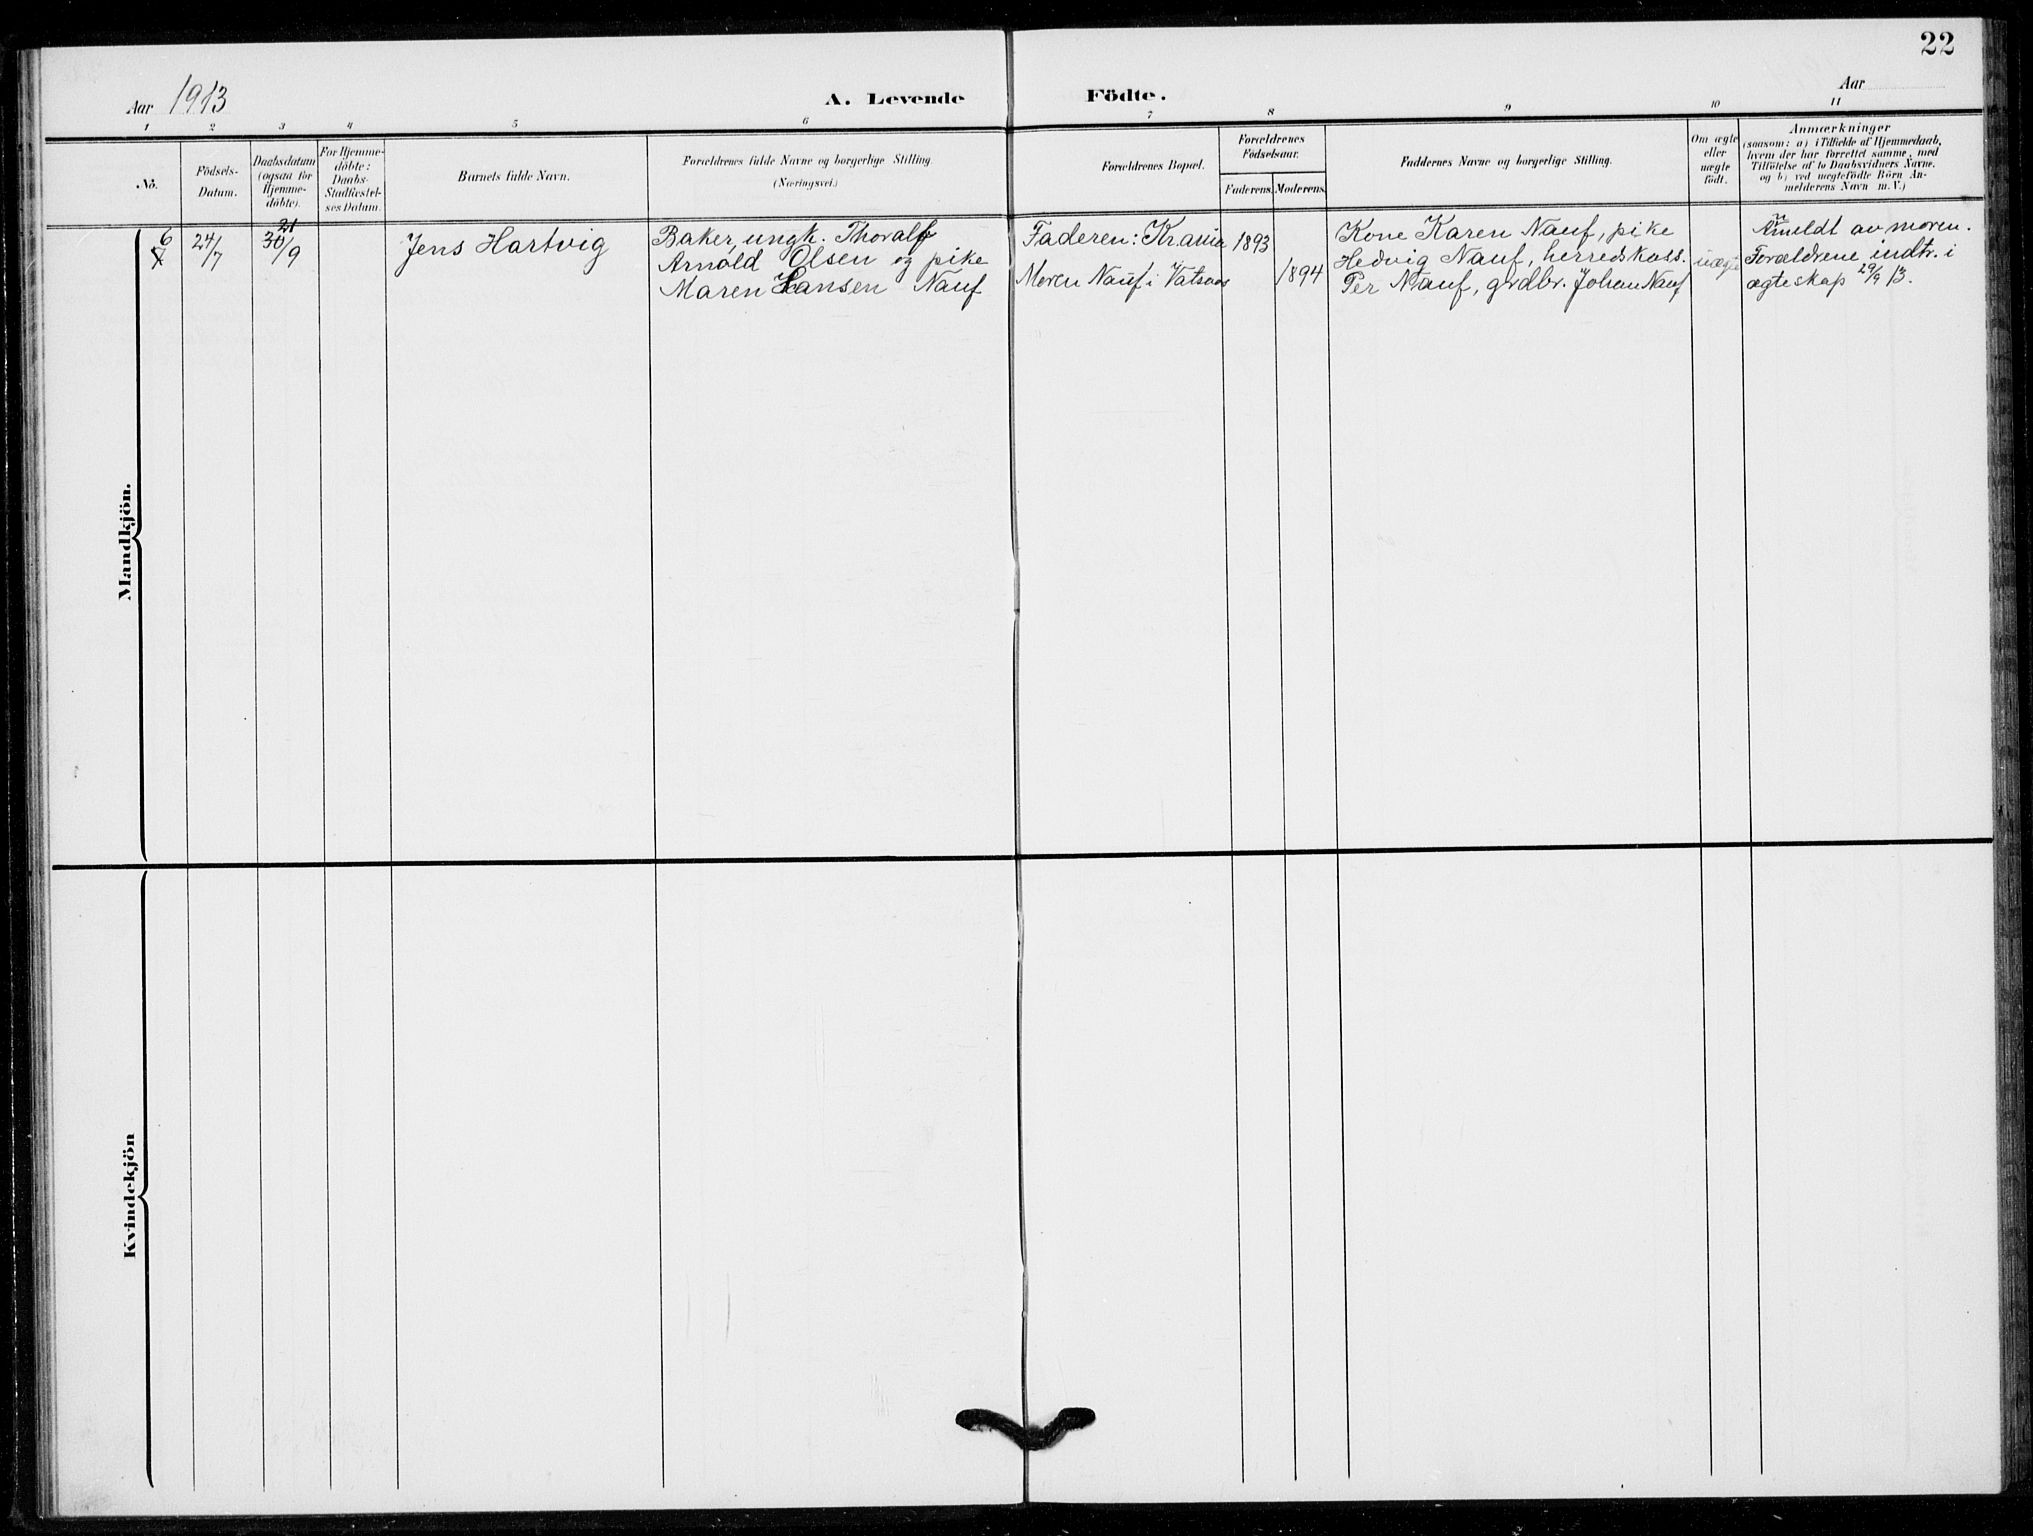 22
Aar 1913
A. Levende Födte.
Aar
1 2 3 4 5 6 7 8 9 10 11
No.
Födsels-Datum.
Daabsdatum (ogsaa for Hjemme-döbte).
For Hjemme-döbte: Daabs-Stadfæstel-ses Datum.
Barnets fulde Navn.
Forældrenes fulde Navne og borgerlige Stilling.
(Næringsvei.)
Forældrenes Bopæl.
Forældrenes Födselsaar.
Faderens. Moderens.
Faddernes Navne og borgerlige Stilling.
Om ægte eller uægte födt.
Anmærkninger
(saasom: a) i Tilfælde af Hjemmedaab,
hvem der har forrettet samme, med
Tilföielse af to Daabsvidners Navne.
og b) ved uægtefödte Börn An-
melderens Navn m. V.)
Mandkjön.
6
7
24/7
21
30/9
Jens Hartvig
Baker, ungk. Thoralf
Arnold Olsen og pike
Maren Hansen Nauf
Faderen: Krania
Moren Nauf i Vatsaas
1893
1894
Kone Karen Nauf, pike
Hedvig Nauf, herredskass.
Per Nauf, grdbr. Johan Nauf
uægte
Anmeldt av moren.
Forældrene indtr. i
ægteskap 29/9 13.
Kvindekjön